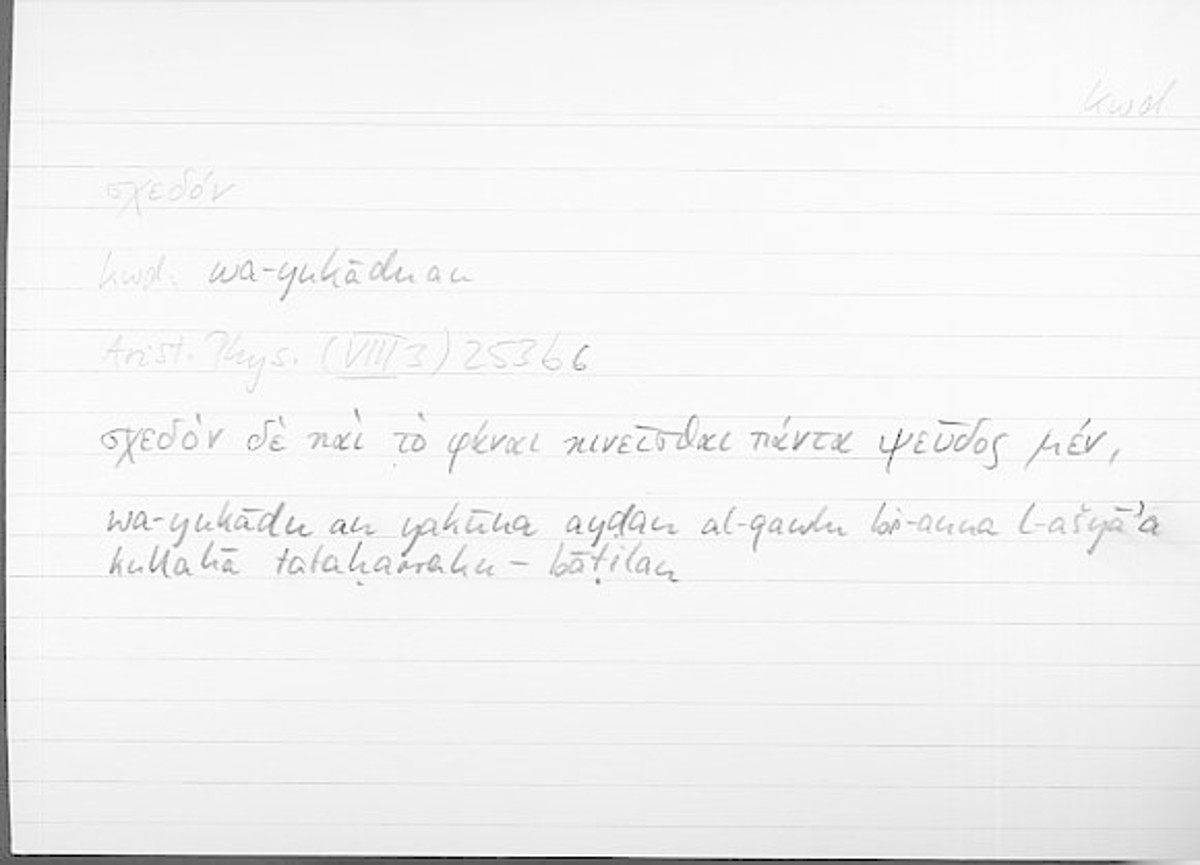 kwd
σχεδόν
kwd. wa-yukādu an
Arist. Phys. (VIII 3) 253b6
σχεδὸν δὲ καὶ τὸ φάναι κινεῖσθαι πάντα ψεῦδος μέν,
wa-yukādu an yakūna ayḍan al-qawlu bi-anna l-ašyā'a
kullahā tataḥarraku – bāṭilan